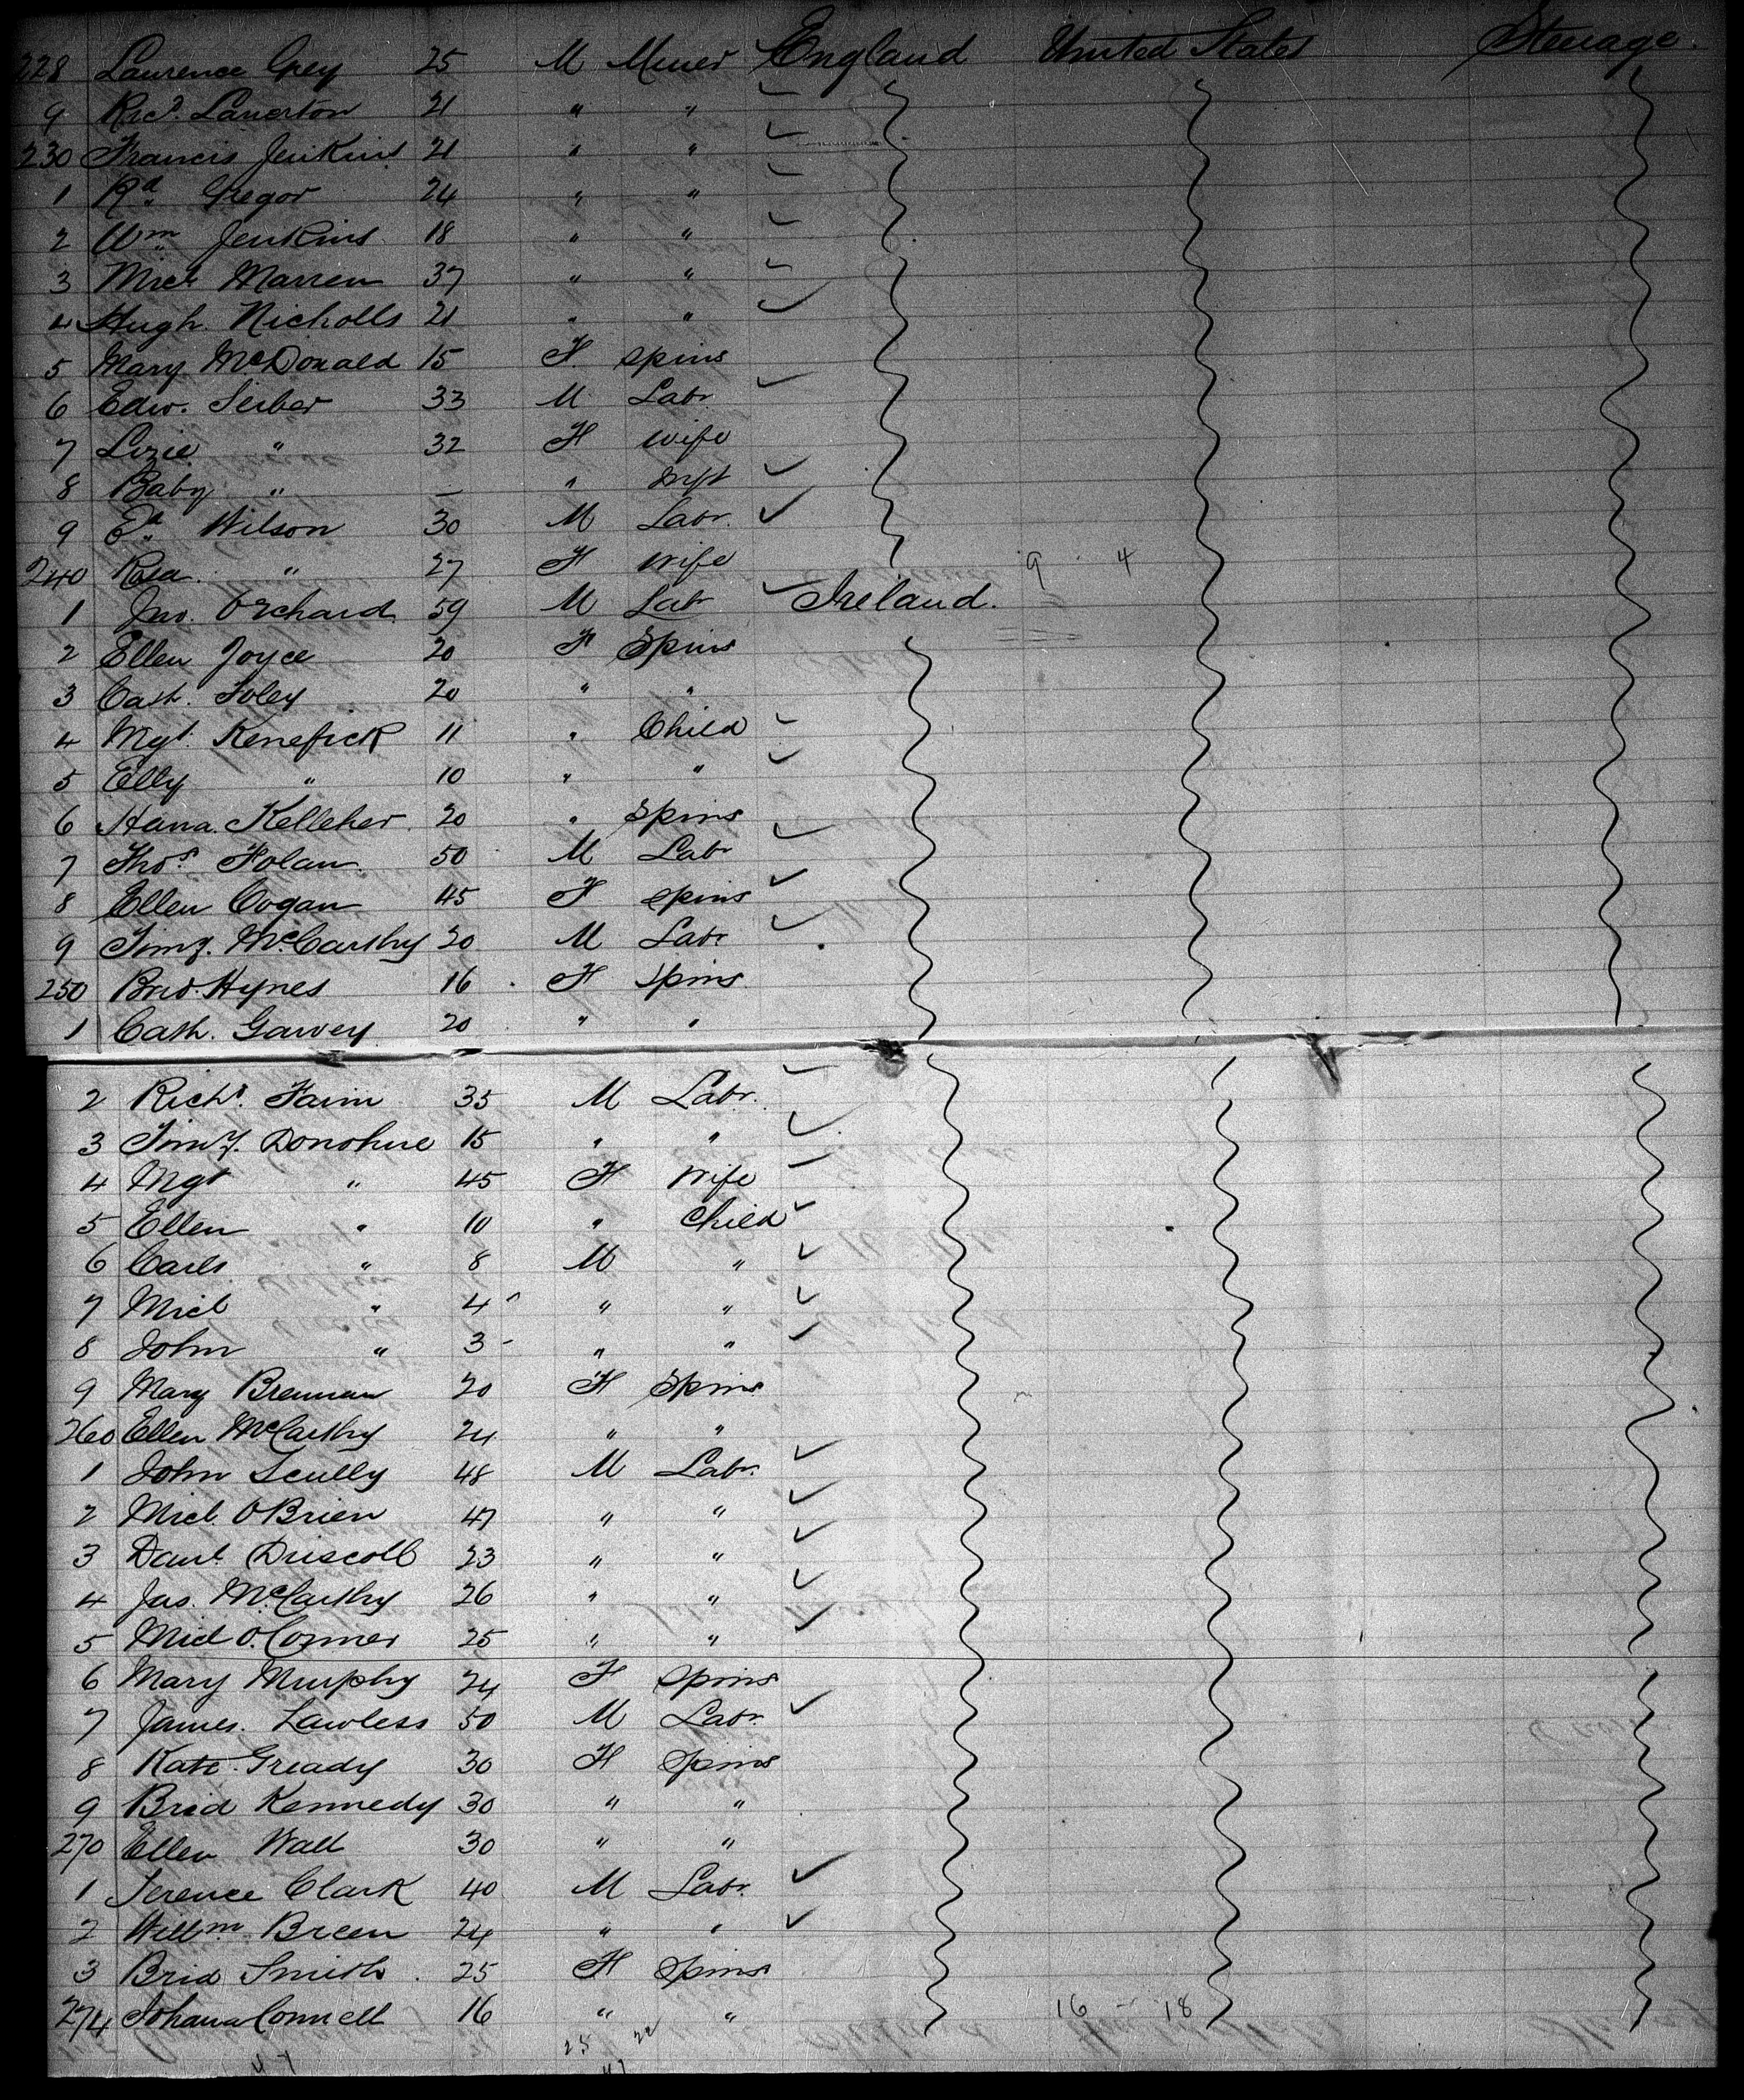 228 Laurence Grey 25 M Miner England United States Steerage.
9 Ricd. Laverton 21 " "
230 Francis Jenkins 21 " "
1 Rd. Gregor 24 " "
2 Wm. Jenkins 18 " "
3 Micl. Warren 37 " "
4 Hugh. Nicholls 21 " "
5 Mary McDonald 15 F. Spins
6 Edw. Seiber 33 M. Labr.
7 Lizie " 32 F Wife
8 Baby " — " Inft
9 Ed. Wilson 30 M Labr.
240 Rosa. " 27 F Wife 9 4
1 Jno. Orchard 59 M Labr Ireland.
2 Ellen Joyce 20 F Spins
3 Cath. Foley 20 " "
4 Mgt. Kenefick 11 " Child
5 Elly " 10 " "
6 Hana. Kelleher. 20 " Spins
7 Thos. Folan. 50 M Labr
8 Ellen Cogan 45 F Spins
9 Timy. McCarthy 20 M Labr.
250 Brid. Hynes 16 F Spins
1 Cath. Garvey 20 " "
2 Richd. 35 M Labr.
3 Timy. Donohue 15 " "
4 Mgt " 45 F Wife
5 Ellen " 10 " Child
6 " 8 M "
7 Micl " 4 " "
8 John " 3 - " "
9 Mary Brennan 20 F Spins
260 Ellen McCarthy 24 " "
1 John Scully 48 M Labr.
2 Micl. O'Brien 47 " "
3 Danl. Driscoll 23 " "
4 Jas. McCarthy 26 " "
5 Micl O.Conner 25 " "
6 Mary Murphy 24 F Spins
7 James. Lawless 50 M Labr.
8 Kate. Gready 30 F Spins
9 Brid Kennedy 30 " "
270 Ellen Wall 30 " "
1 Terence Clark 40 M Labr.
2 Willm. Breen 24 " "
3 Brid Smith. 25 F Spins
274 Johana Connell 16 " " 16 - 18